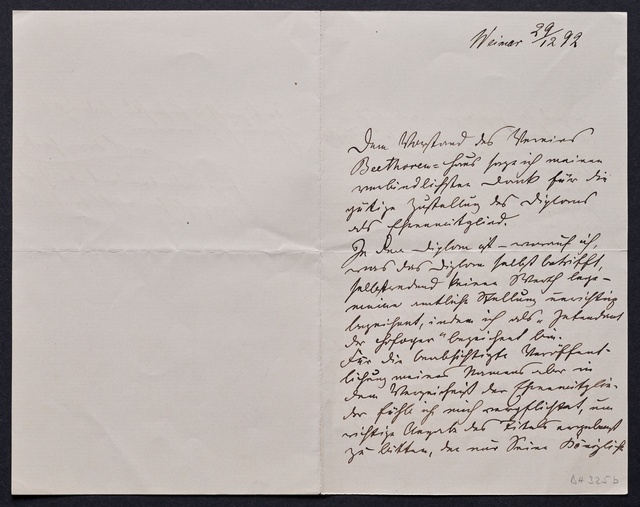 Weimar 29/12 92
Dem Vorstand des Vereins
Beethoven-Haus sage ich meinen
verbindlichsten Dank für die
gütige Zustellung des Diploms
als Ehrenmitglied.
In dem Diplom ist – worauf ich,
was das Diplom selbst betrifft,
selbstredend keinen Werth lege –
meine amtliche Stellung unrichtig
bezeichnet, indem ich als "Intendant
der Hofoper" bezeichnet bin.
Für die beabsichtigte Veröffent-
lichung meines Namens aber in
dem Verzeichniß der Ehrenmitglie-
der fühle ich mich verpflichtet, um
richtige Angabe des Titels ergebenst
zu bitten, den mir Seine Königliche
BH 325 b